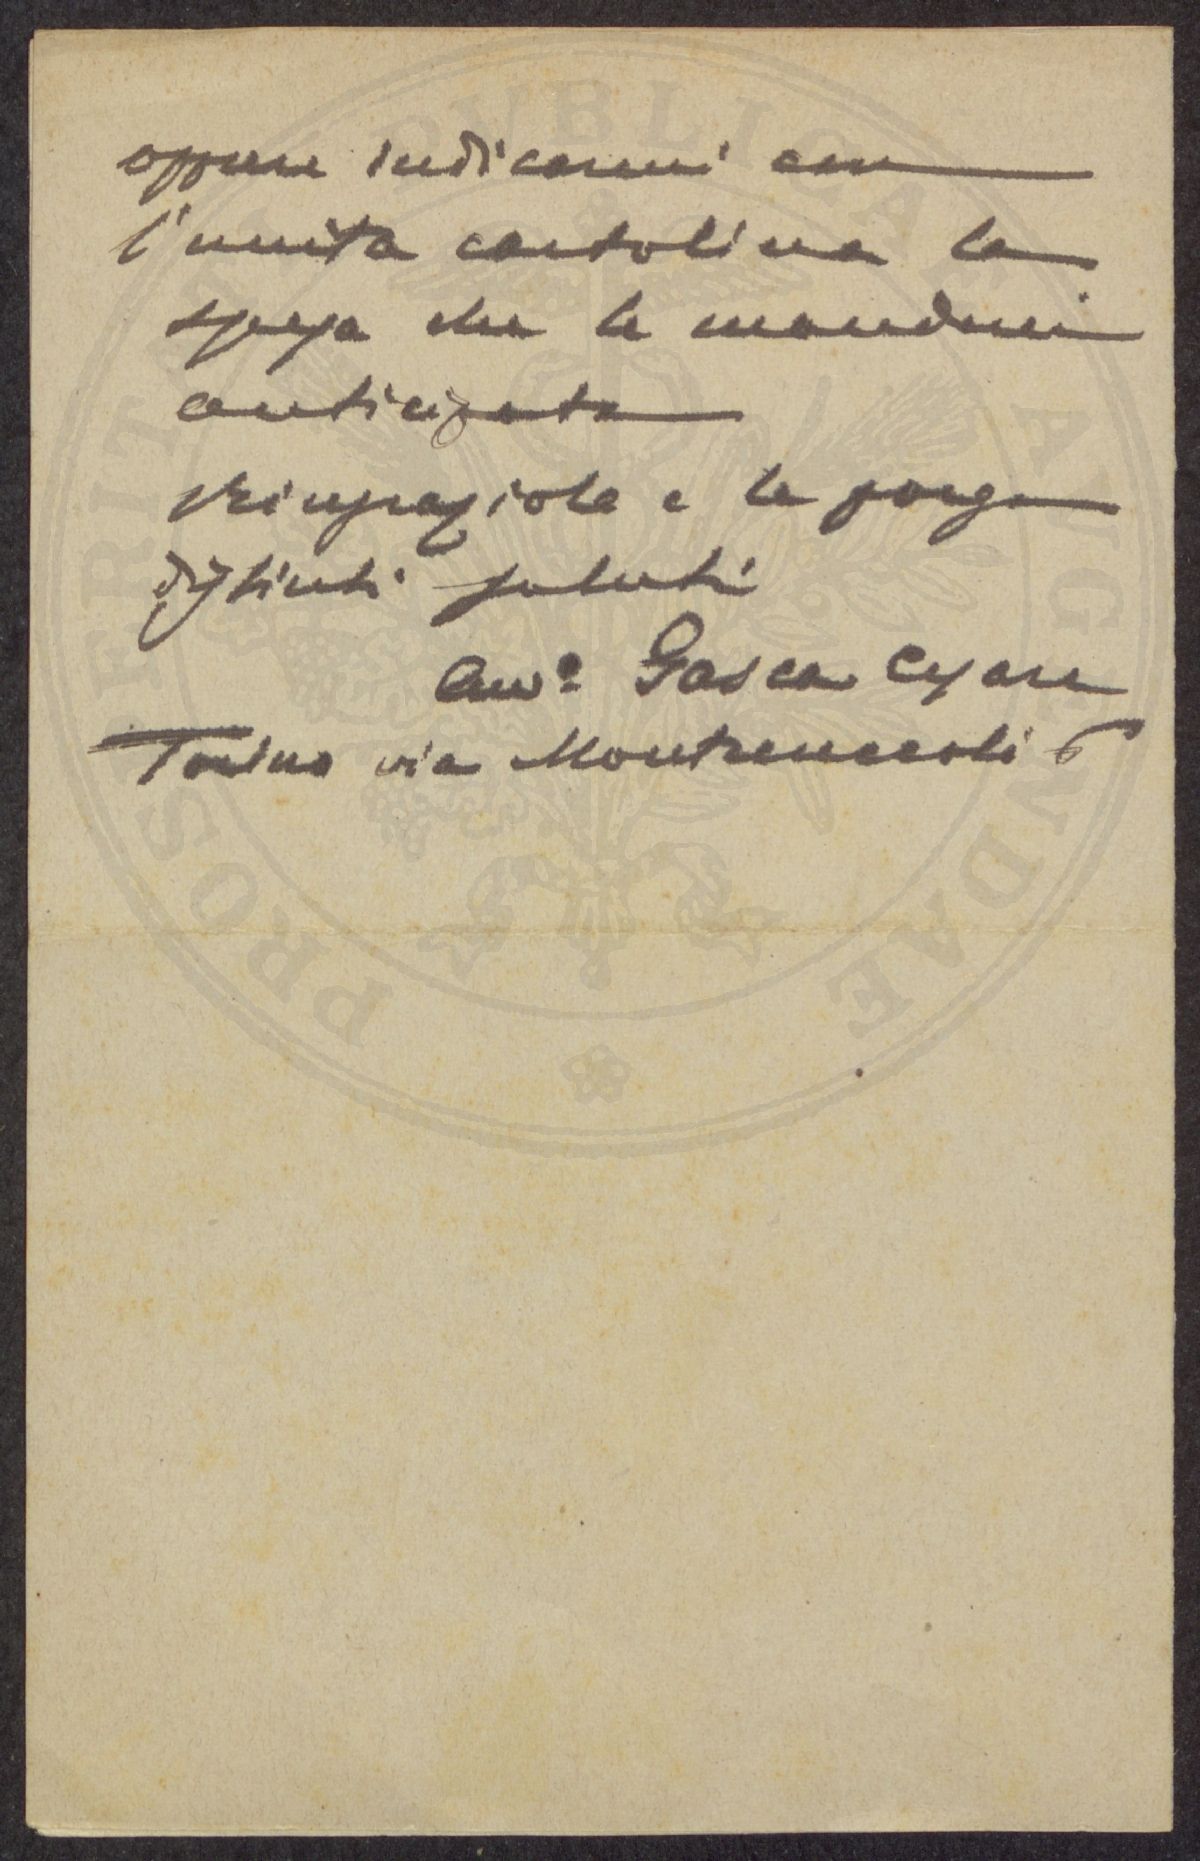 oppure indicarmi con
l'unita cartolina la
spesa che le manderei
anticipata
Ringraziola e le porgo
distinti saluti
Avvo Gasca Cesare
Torino via Montecuccoli 6
PROSPERITATI PUBLICAE AUGENDAE